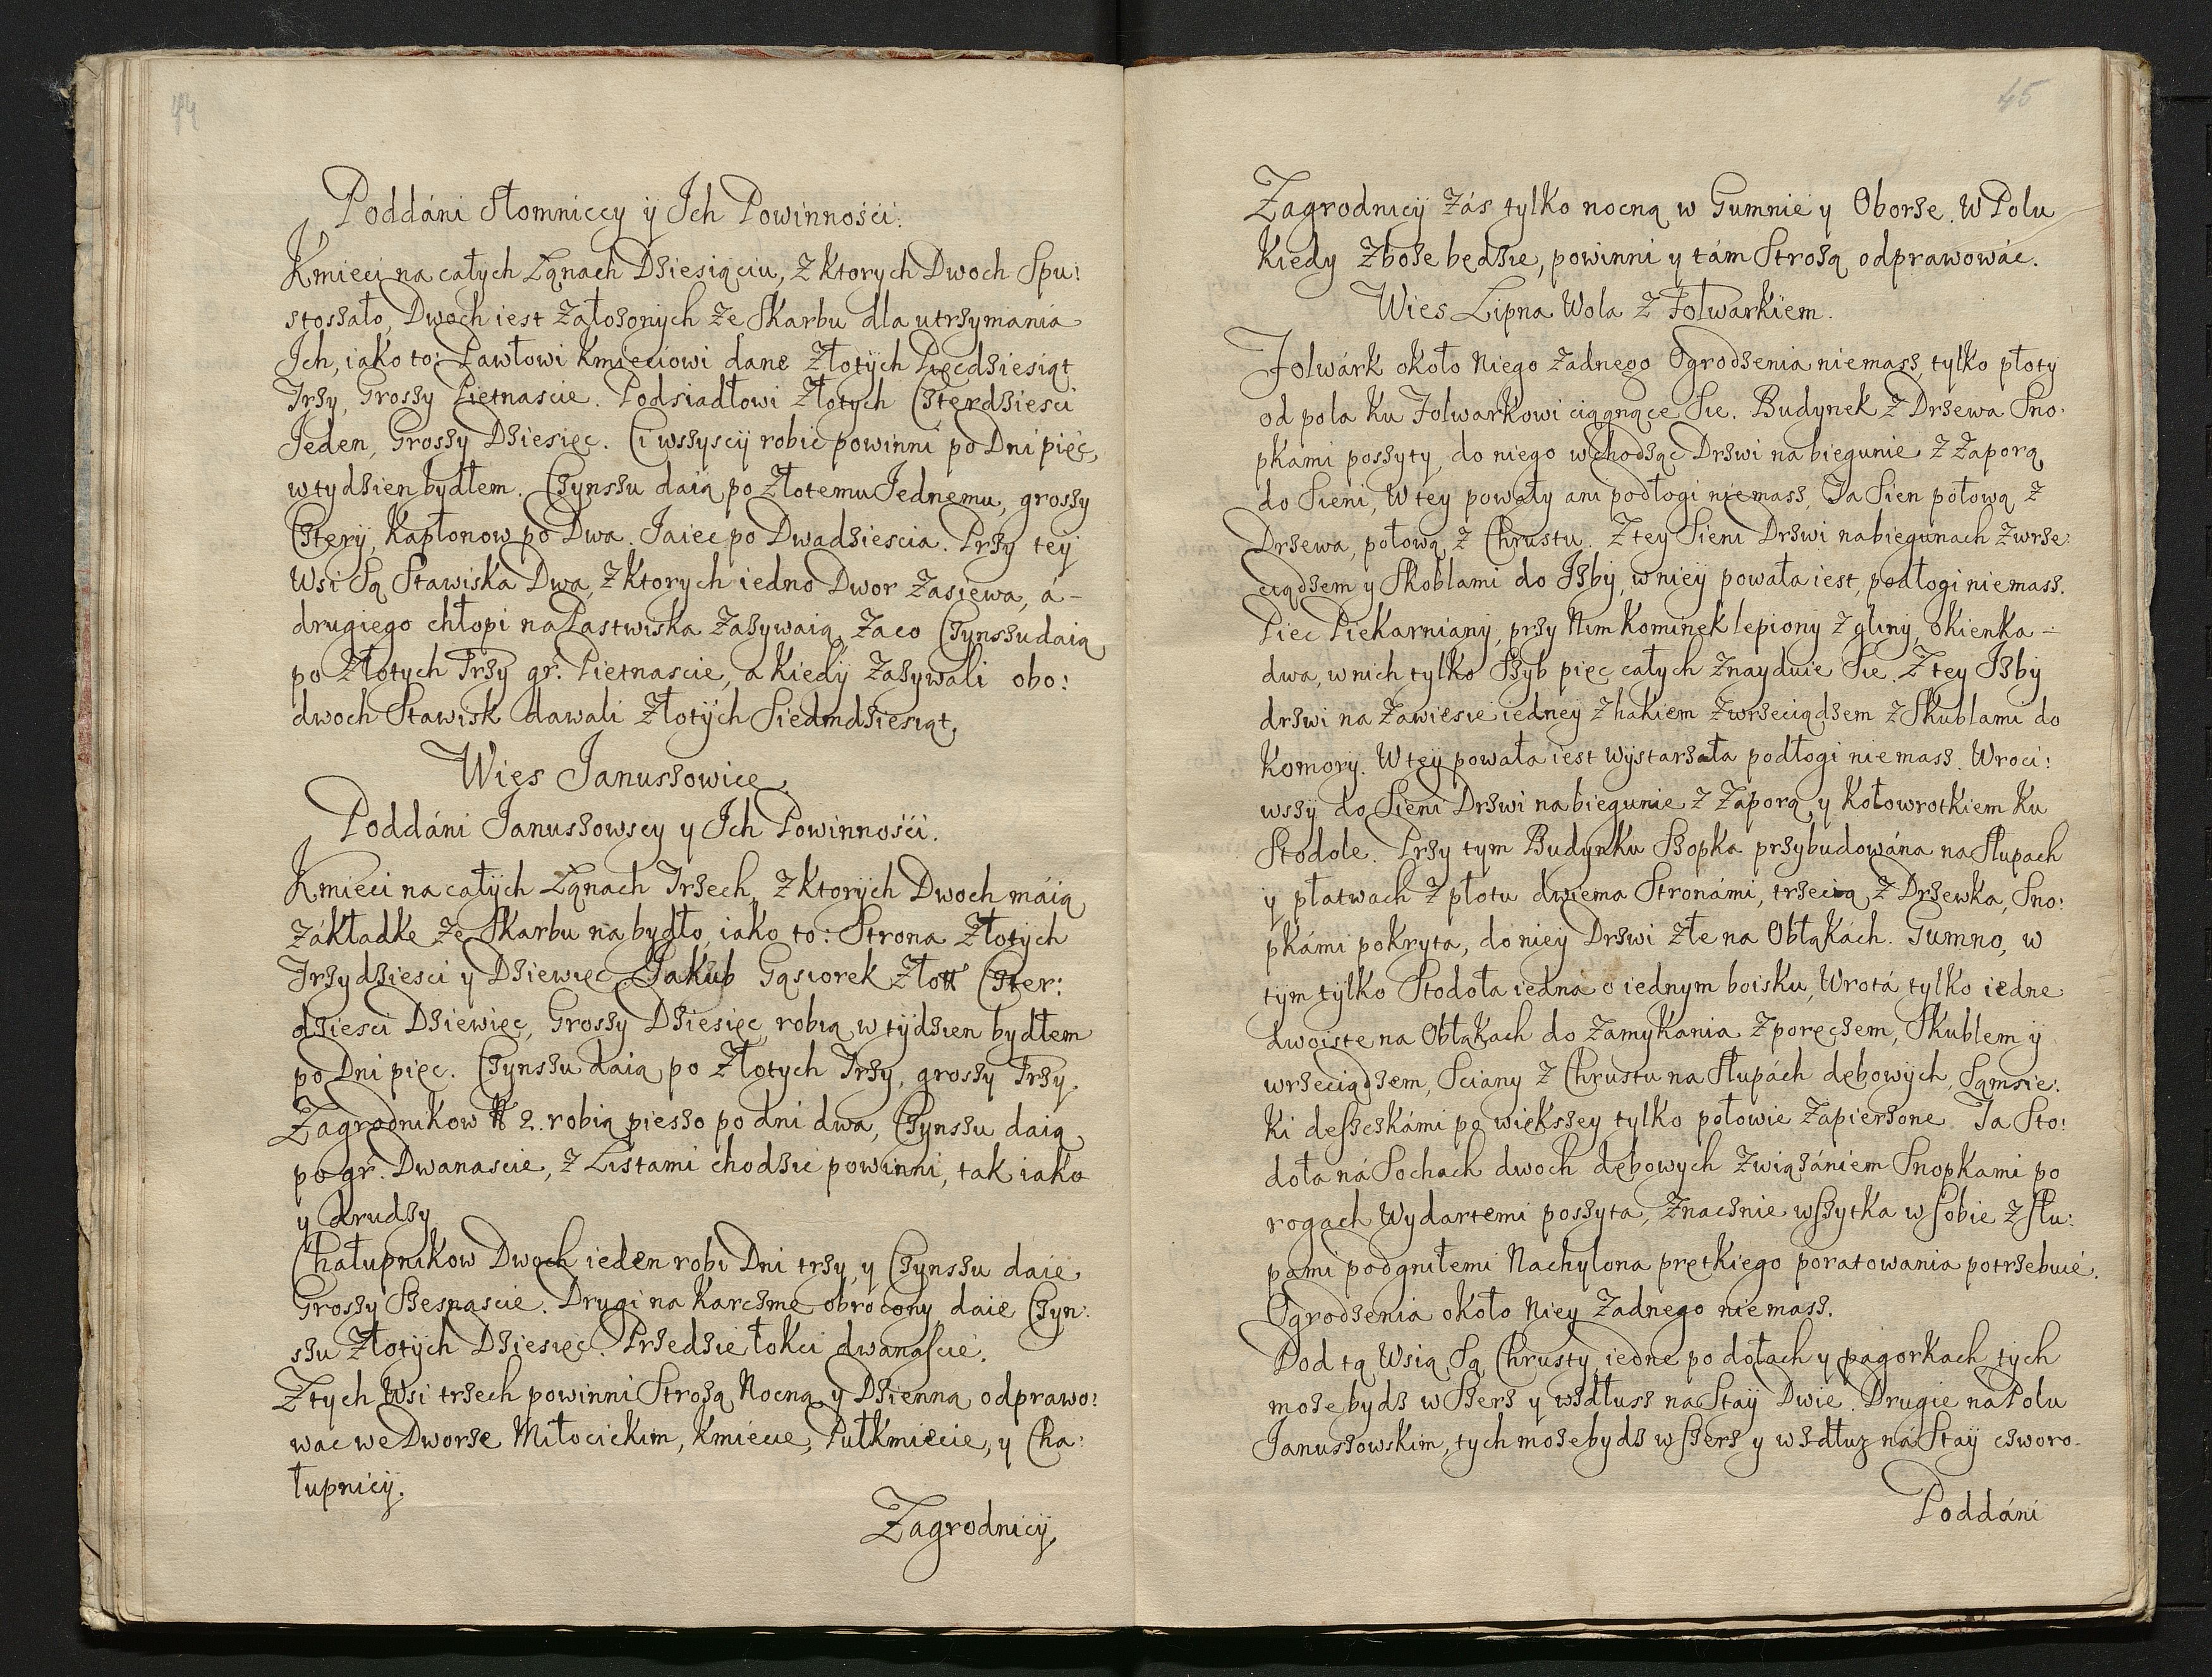 44
Poddáni Słomniccy ÿ Ich Powinnośći.
Kmieci na całych Łąnach Dźiesiąciu, z ktorych Dwoch Spu:
stoszało, Dwoch iest założonych ze Skarbu dla utrzymania
Ich, iako to: Pawłowi Kmieciowi dane Złotÿch Pięcdźiesiąt
Trzy, Groszy Pietnascie. Podsiadłowi Złotych Czterdźiesci
Jeden, Groszy Dźiesięc. Ci wszyscÿ robic powinni po Dni pięć,
w tydźien bydłem. Czynszu daią po Złotemu Jednemu, groszy
Czterÿ, Kapłonow po Dwa. Jaiec po Dwadźiescia. Przy teÿ
Wsi Są Stawiska Dwa, z ktorych iedno Dwor zasiewa, á -
drugiego chłopi na Pastwiska zażywaią, za co Czynszu daią
po Złotych Trzy gr. Pietnascie, a kiedÿ zażywali obo:
dwoch Stawisk dawali Złotÿch Siedmdźiesiąt.
Wies Januszowice.
Poddáni Januszowscy y Ich Powinnośći.
Kmieci na całÿch Łąnach Trzech, z ktorÿch Dwoch máią
zákładke ze Skarbu na bydło, iako to: Strona Złotÿch
Trzydźiesci y Dźiewięc. Jakub Gąsiorek Złott Czter:
dźiesci Dźiewięc, Groszy Dźiesięc, robią w tÿdźien bydłem
po Dni pięc. Czynszu daią po Złotych Trzy, groszy Trzy.
Zagrodnikow N 2. robią pieszo po dni dwa, Czynszu daią
po gr. Dwanascie, z Listami chodźić powinni, tak iako
y drudzy
Chałupnikow Dwoch ieden robi Dni trzy, y Czynszu daie
Groszy Szesnascie. Drugi na karczme obrocony daie Czyn:
szu Złotÿch Dźiesięc. Przedźie łokci dwanaście.
Z tych Wsi trzech powinni Strożą Nocną y Dźienną odprawo:
wac we Dworze Miłocickim, Kmiecie, Pułkmiecie, y Cha:
łupnicÿ.
Zagrodnicÿ
45
Zagrodnicÿ zás tylko nocną w Gumnie y Oborze. W Polu
kiedy zboże będźie, powinni y tám Strożą odprawowác.
Wies Lipna Wola z Folwarkiem.
Folwárk około niego żadnego Ogrodzenia niemasz, tylko płoty
od pola ku Folwarkowi ciągnące Sie. Budynek z Drzewa Sno:
pkami poszyty, do niego wchodząc Drzwi na biegunie z zaporą
do Sieni, W tey powały ani podłogi niemasz, Ta Sien połową z
Drzewa, połową z Chrustu. Z tey Sieni Drzwi na biegunach z wrze:
ciądzem y Skoblami do Izbÿ, w nieÿ powała iest, podłogi niemasz.
Piec Piekarniany, przy Nim Kominek lepiony z gliny, okienka -
dwa, w nich tylko Szyb pięc całych znayduie Sie. Z tey Izbÿ
drzwi na zawiesie iedneÿ z hakiem z wrzeciądzem z Skublami do
Komorÿ. W teÿ powała iest wÿstarzała podłogi niemasz. Wroci:
wszÿ do Sieni Drzwi na biegunie z zaporą y kołowrotkiem ku
Stodole. Przy tym Budynku Szopka przybudowána na Słupach
y płatwach z płotu dwiema Stronámi, trzecią z Drzewka, Sno:
pkámi pokryta, do nieÿ Drzwi złe na Obłąkách. Gumno, w
tym tÿlko Stodoła iedná o iednym boisku, Wrotá tylko iedne
dwoiste na Obłąkach do zamykania z poręczem, Skublem ÿ
wrzeciądzem, Sciany z Chrustu na Słupách dębowÿch, Sąmsie:
ki deszczkámi po większey tylko połowie zapierzone. Ta Sto:
doła ná Sochach dwoch dębowych z wiązániem Snopkami po
rogach wydartemi poszyta, znacznie wszytka w sobie z Słu:
pami podgniłemi Nachylona prętkiego poratowania potrzebuié.
Ogrodzenia około Niey żadnego niemasz.
Pod tą Wsią Są Chrusty, iedne po dołach y pagorkach, tych
może bydź w Szerz y wzdłusz na Staÿ Dwie. Drugie na Polu
Januszowskim, tych może bydź w szerz y wzdłuz ná Staÿ czworo.
Poddáni